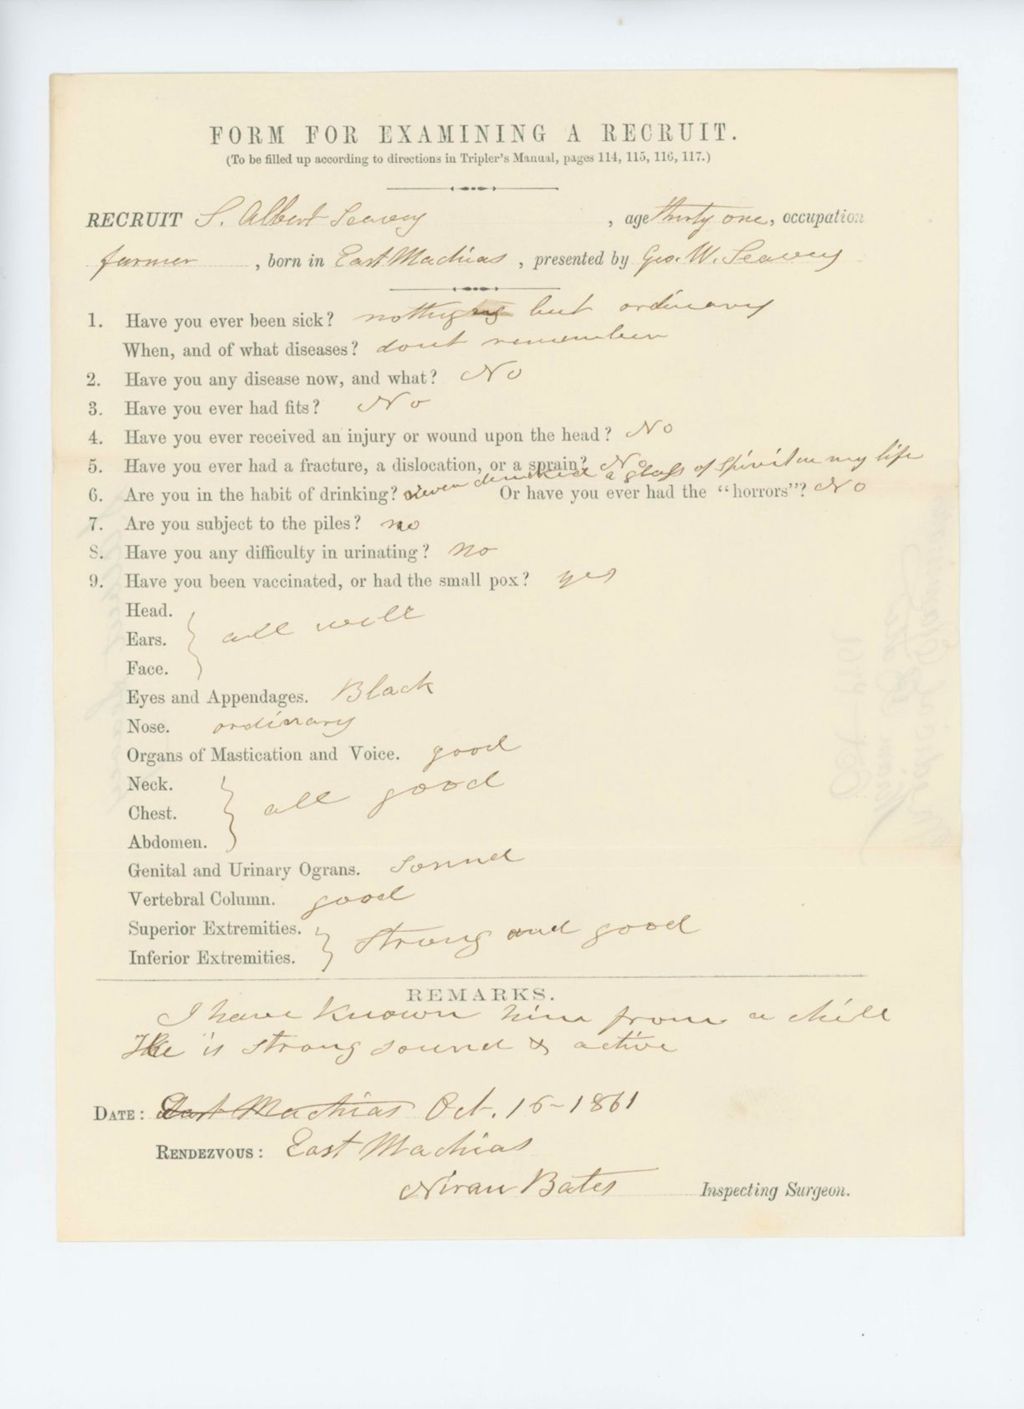 FORM FOR EXAMINING A RECRUIT.
(To be filled up according to directions in Tripler's Manual, pages 114, 115, 116, 117.)
RECRUIT S. Albert Seavey, age thirty one, occupation
farmer, born in East Machias, presented by Geo. W. Seavey
1. Have you ever been sick? nothing but ordinary
When, and of what diseases? dont remember
2. Have you any disease now, and what? No
3. Have you ever had fits? No
4. Have you ever received an injury or wound upon the head? No
5. Have you ever had a fracture, a dislocation, or a sprain? No
6. Are you in the habit of drinking? never drinked a glass of spirit in my life Or have you ever had the "horrors"? No
7. Are you subject to the piles? no
8. Have you any difficulty in urinating? no
9. Have you been vaccinated, or had the small pox? yes
Head.
Ears. all well
Face.
Eyes and Appendages. Black
Nose. ordinary
Organs of Mastication and Voice. good
Neck.
Chest. all good
Abdomen.
Genital and Urinary Ograns. sound
Vertebral Column. good
Superior Extremities. strong and good
Inferior Extremities.
REMARKS.
I have known him from a chill
He is strong sound & active
DATE: East Machias Oct. 16-1861
RENDEZVOUS: East Machias
Niran Bates Inspecting Surgeon.